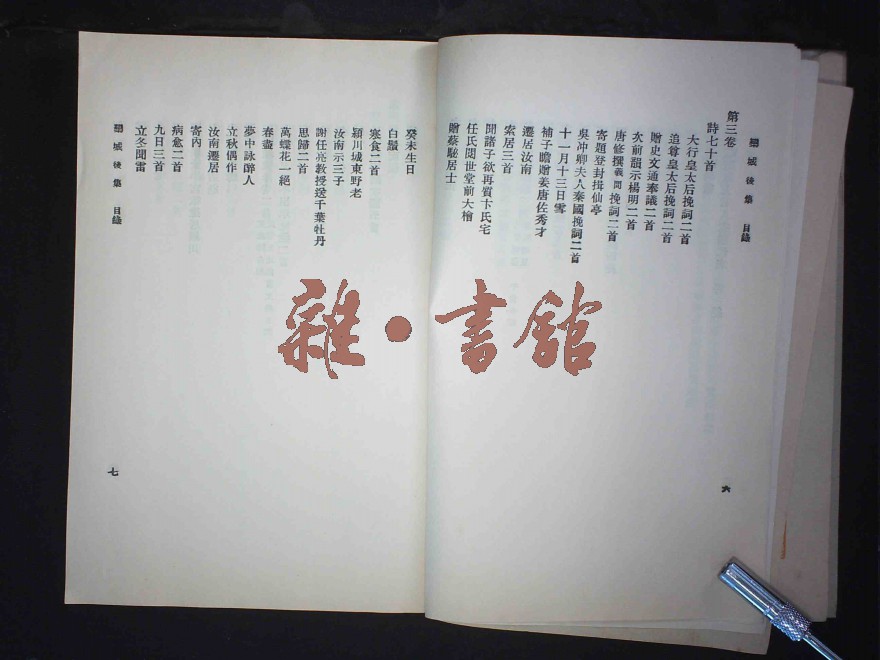 欒城後集 目錄
第三卷
詩七十首
大行皇太后挽詞二首
追尊皇太后挽詞二首
贈史文通奉議二首
次前韻示楊明二首
唐修撰義問挽詞二首
寄題登封揖仙亭
吳冲卿夫人秦國挽詞二首
十一月十三日雪
補子瞻贈姜唐佐秀才
遷居汝南
索居三首
聞諸子欲再質卞氏宅
任氏閱世堂前大檜
贈蔡駞居士
六
癸未生日
白鬚
寒食二首
潁川城東野老
汝南示三子
謝任亮教授送千葉牡丹
思歸二首
萬蝶花一絕
春盡
夢中詠醉人
立秋偶作
汝南遷居
寄內
病愈二首
九日三首
立冬聞雷
欒城後集 目錄
七
雜·書舘